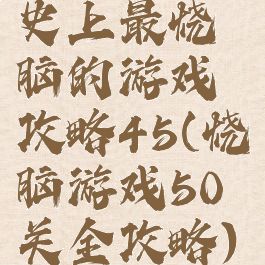 史上最烧
脑的游戏
攻略45(烧
脑游戏50
关全攻略)